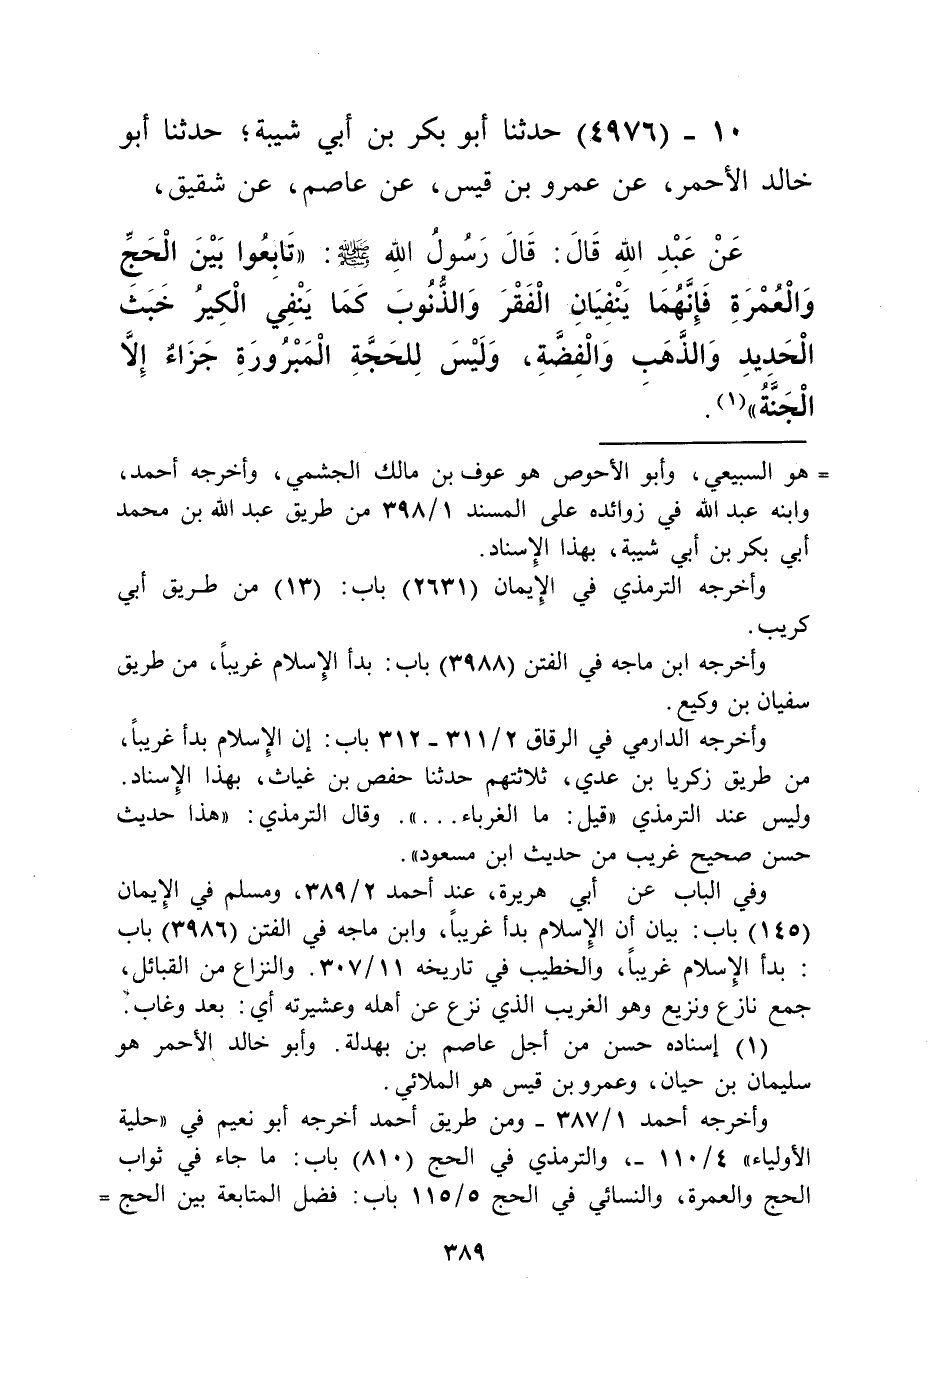 ١٠ ـ (٤٩٧٦) حدثنا أبو بكر بن أبي شيبة؛ حدثنا أبو
خالد الأحمر، عن عمرو بن قيس، عن عاصم، عن شقيق،
عَنْ عَبْدِ اللهِ قَالَ: قَالَ رَسُولُ اللهِ ﷺ: «تَابِعُوا بَيْنَ الْحَجِّ
وَالْعُمْرَةِ فَإِنَّهُمَا يَنْفِيَانِ الْفَقْرَ وَالذُّنُوبَ كَمَا يَنْفِي الْكِيرُ خَبَثَ
الْحَدِيدِ وَالذَّهَبِ وَالْفِضَّةِ، وَلَيْسَ لِلحَجَّةِ الْمَبْرُورَةِ جَزَاءٌ إِلَّا
الْجَنَّةُ»(١).
= هو السبيعي، وأبو الأحوص هو عوف بن مالك الجشمي، وأخرجه أحمد،
وابنه عبد الله في زوائده على المسند ٣٩٨/١ من طريق عبد الله بن محمد
أبي بكر بن أبي شيبة، بهذا الإسناد.
وأخرجه الترمذي في الإيمان (٢٦٣١) باب: (١٣) من طريق أبي
كريب.
وأخرجه ابن ماجه في الفتن (٣٩٨٨) باب: بدأ الإسلام غريباً، من طريق
سفيان بن وكيع.
وأخرجه الدارمي في الرقاق ٣١١/٢ ـ ٣١٢ باب: إن الإسلام بدأ غريباً،
من طريق زكريا بن عدي، ثلاثتهم حدثنا حفص بن غياث، بهذا الإسناد.
وليس عند الترمذي «قيل: ما الغرباء...». وقال الترمذي: «هذا حديث
حسن صحيح غريب من حديث ابن مسعود».
وفي الباب عن أبي هريرة، عند أحمد ٣٨٩/٢، ومسلم في الإيمان
(١٤٥) باب: بيان أن الإسلام بدأ غريباً، وابن ماجه في الفتن (٣٩٨٦) باب
: بدأ الإسلام غريباً، والخطيب في تاريخه ٣٠٧/١١. والنزاع من القبائل،
جمع نازع ونزيع وهو الغريب الذي نزع عن أهله وعشيرته أي: بعد وغاب.
(١) إسناده حسن من أجل عاصم بن بهدلة. وأبو خالد الأحمر هو
سليمان بن حيان، وعمرو بن قيس هو الملائي.
وأخرجه أحمد ٣٨٧/١ ـ ومن طريق أحمد أخرجه أبو نعيم في «حلية
الأولياء» ١١٠/٤ ـ، والترمذي في الحج (٨١٠) باب: ما جاء في ثواب
الحج والعمرة، والنسائي في الحج ١١٥/٥ باب: فضل المتابعة بين الحج =
٣٨٩